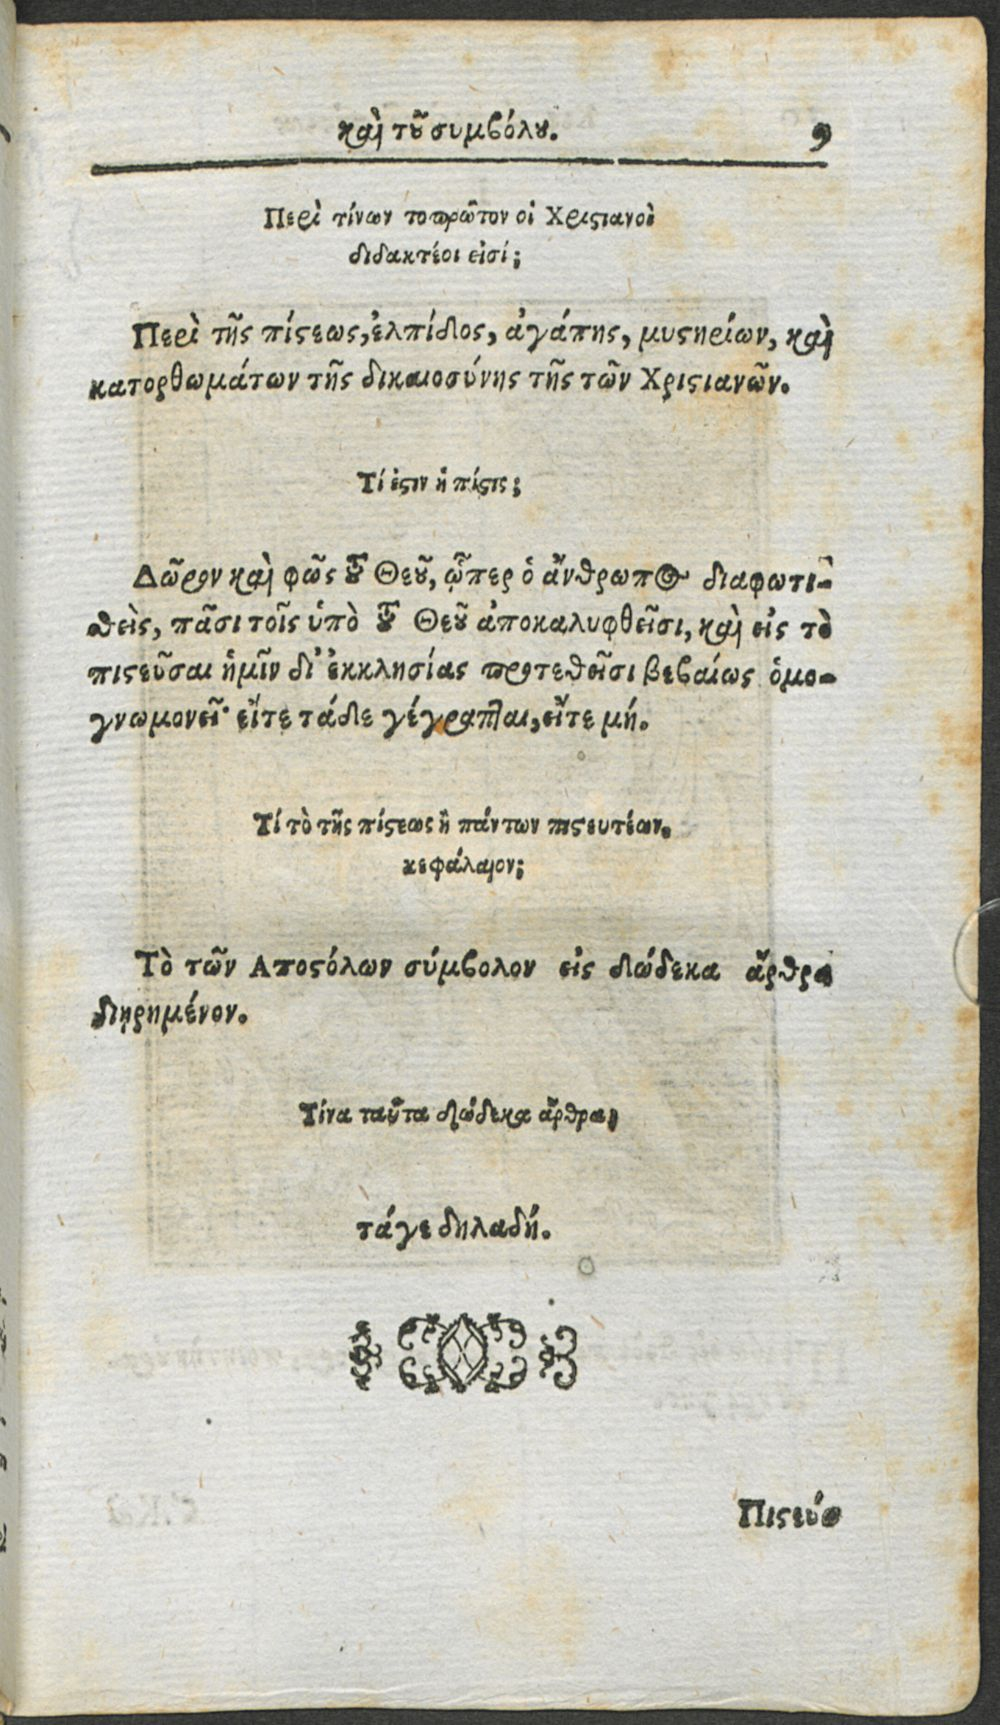 καὶ τοῦ συμβόλου. 9
Περὶ τίνων τοπρῶτον οἱ Χριστιανοὶ
διδακτέοι εἰσί;
Περὶ τῆς πίστεως, ἐλπίδος, ἀγάπης, μυστηρίων, καὶ
κατορθωμάτων τῆς δικαιοσύνης τῆς τῶν Χριστιανῶν.
Τί ἐστιν ἡ πίστις;
Δῶρον καὶ φῶς τοῦ Θεοῦ, ᾧπερ ὁ ἄνθρωπος διαφωτι-
θεὶς, πᾶσι τοῖς ὑπὸ τοῦ Θεοῦ ἀποκαλυφθεῖσι, καὶ εἰς τὸ
πιστεῦσαι ἡμῖν δι' ἐκκλησίας προτεθεῖσι βεβαίως ὁμο-
γνωμονεῖ· εἴτε τάδε γέγραπται, εἴτε μή.
Τί τὸ τῆς πίστεως ἢ πάντων πιστευτέων.
κεφάλαιον;
Τὸ τῶν Αποστόλων σύμβολον εἰς δώδεκα ἄρθρα
διῃρημένον.
Τίνα ταῦτα δώδεκα ἄρθρα;
τάγε δηλαδή.
Πιστεύω